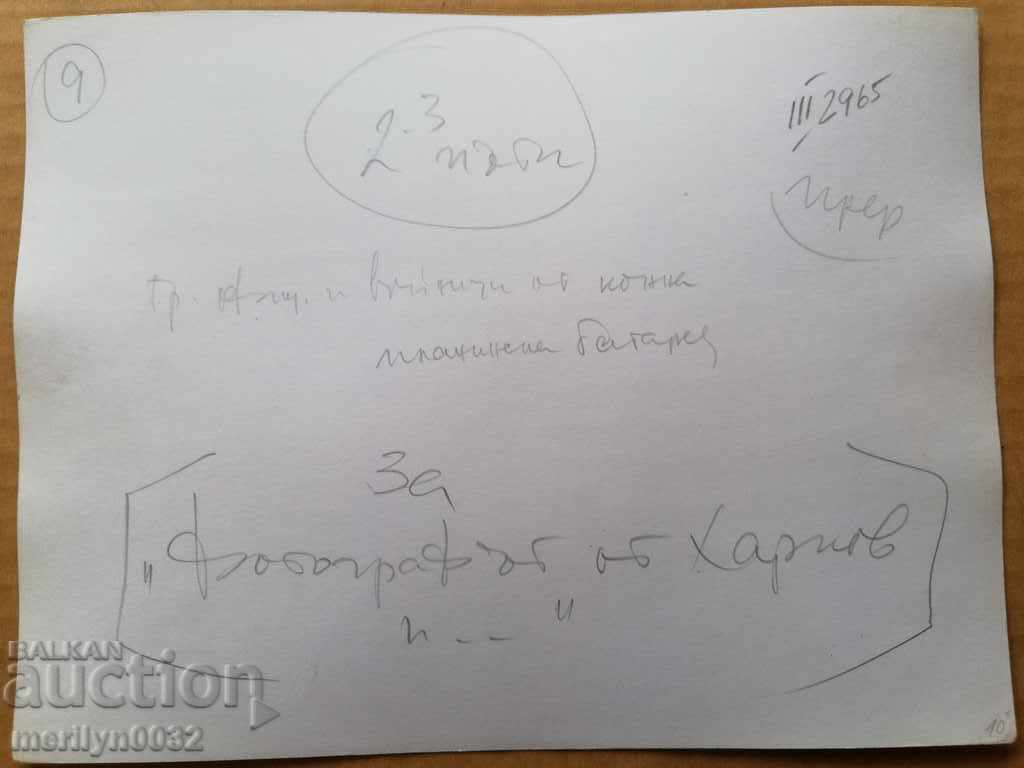 9
2-3
пъти
III 2965
гр. и войници от конна
планинска батарея
За
„Фотографът от Харков
и -- "
BALKAN
auction
merilyn0032
10